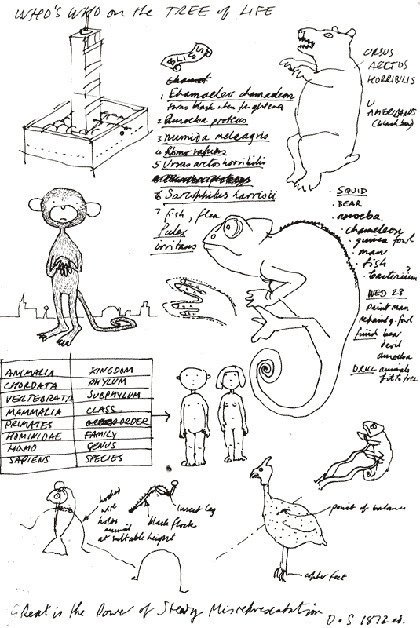 WHO'S WHO on the TREE of LIFE
1. Chamaeleo chamaeleon
turns black when
2. Amoeba proteus
3. Numida meleagris
4.
5. Ursus arctos horribilis
6. Sarcophilus harrisii
7. fish, flea
Pulex
irritans
URSUS
ARCTUS
HORRIBILIS
U
AMERICANUS
SQUID
· BEAR
· amoeba
· chameleon
· guinea fowl
· man
· fish
· bacterium
WED 23
Paint man
finish bear
amoeba
DRAW animals
ANIMALIA KINGDOM
CHORDATA PHYLUM
VERTEBRATA SUBPHYLUM
MAMMALIA CLASS
PRIMATES ORDER
HOMINIDAE FAMILY
HOMO GENUS
SAPIENS SPECIES
wire
holes
at suitable height
insect leg
black flock
point of balance
alter feet
Great is the Power of Steady Misrepresentation